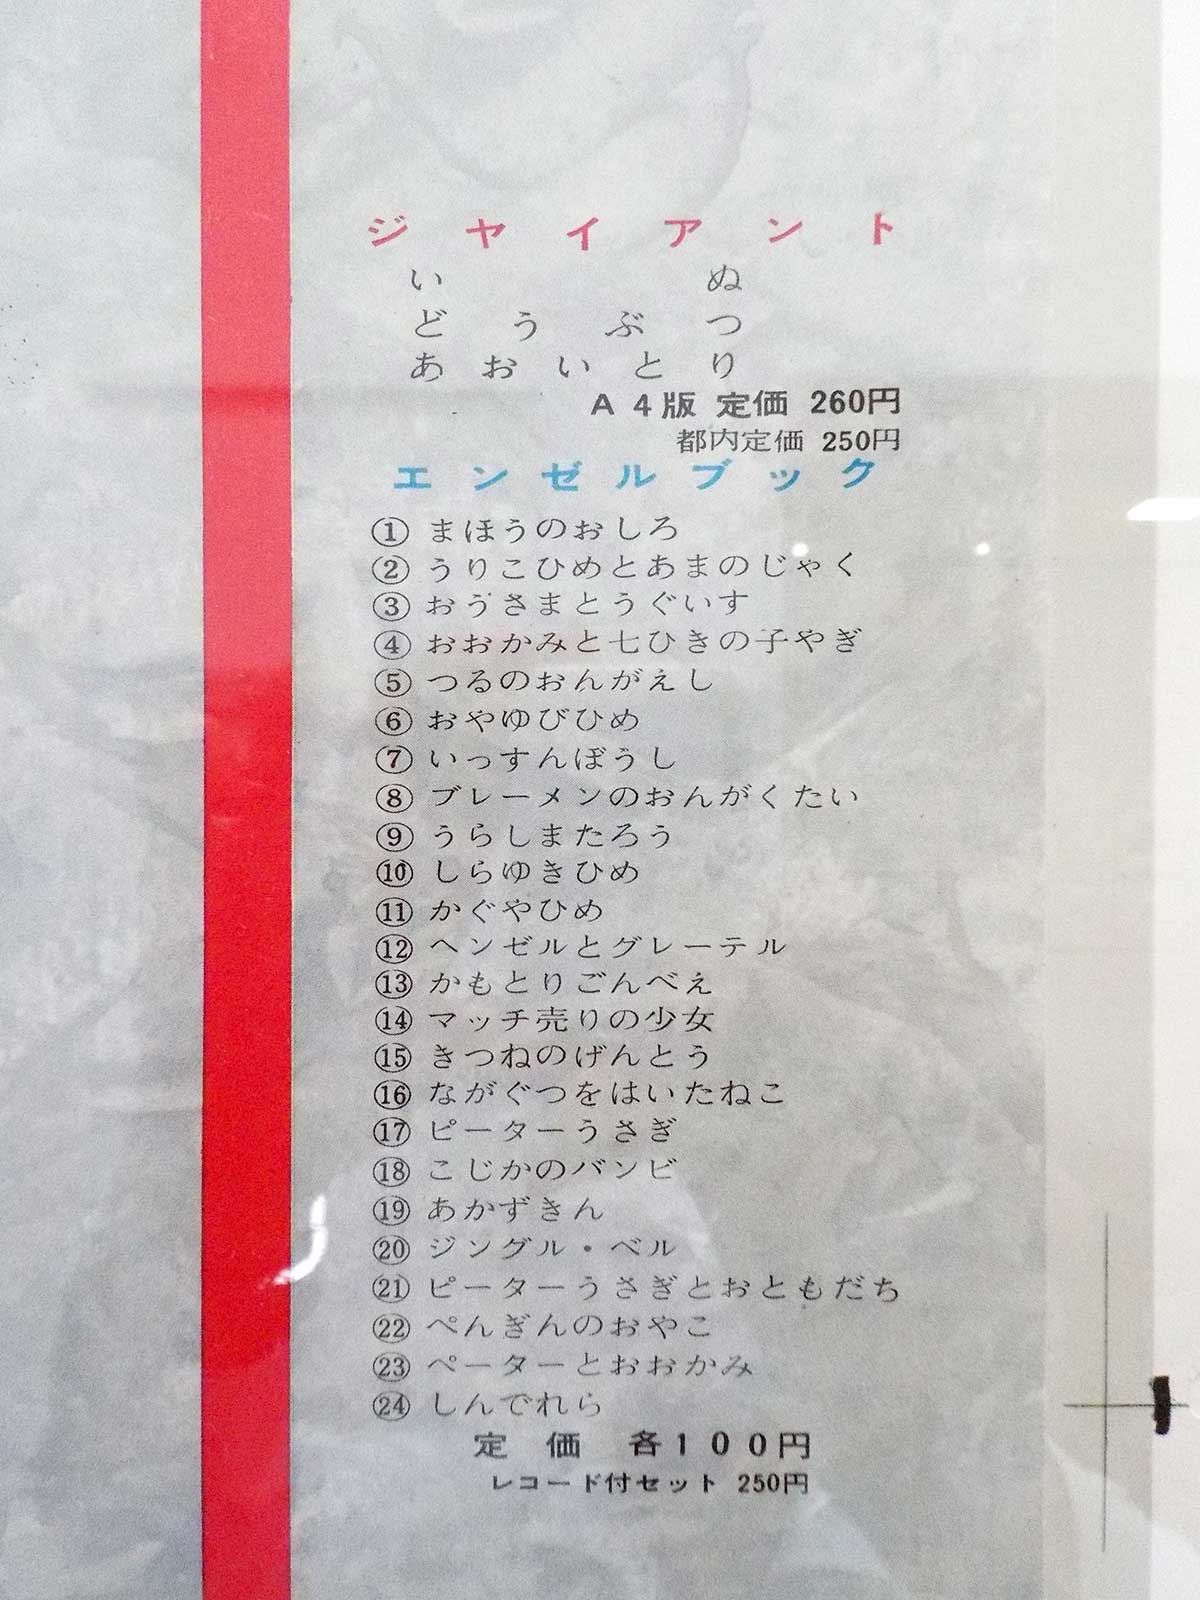 ジャイアント
いぬ
どうぶつ
あおいとり
A4版 定価 260円
都内定価 250円
エンゼルブック
① まほうのおしろ
② うりこひめとあまのじゃく
③ おうさまとうぐいす
④ おおかみと七ひきの子やぎ
⑤ つるのおんがえし
⑥ おやゆびひめ
⑦ いっすんぼうし
⑧ ブレーメンのおんがくたい
⑨ うらしまたろう
⑩ しらゆきひめ
⑪ かぐやひめ
⑫ ヘンゼルとグレーテル
⑬ かもとりごんべえ
⑭ マッチ売りの少女
⑮ きつねのげんとう
⑯ ながぐつをはいたねこ
⑰ ピーターうさぎ
⑱ こじかのバンビ
⑲ あかずきん
⑳ ジングル・ベル
㉑ ピーターうさぎとおともだち
㉒ ぺんぎんのおやこ
㉓ ペーターとおおかみ
㉔ しんでれら
定価 各100円
レコード付セット 250円